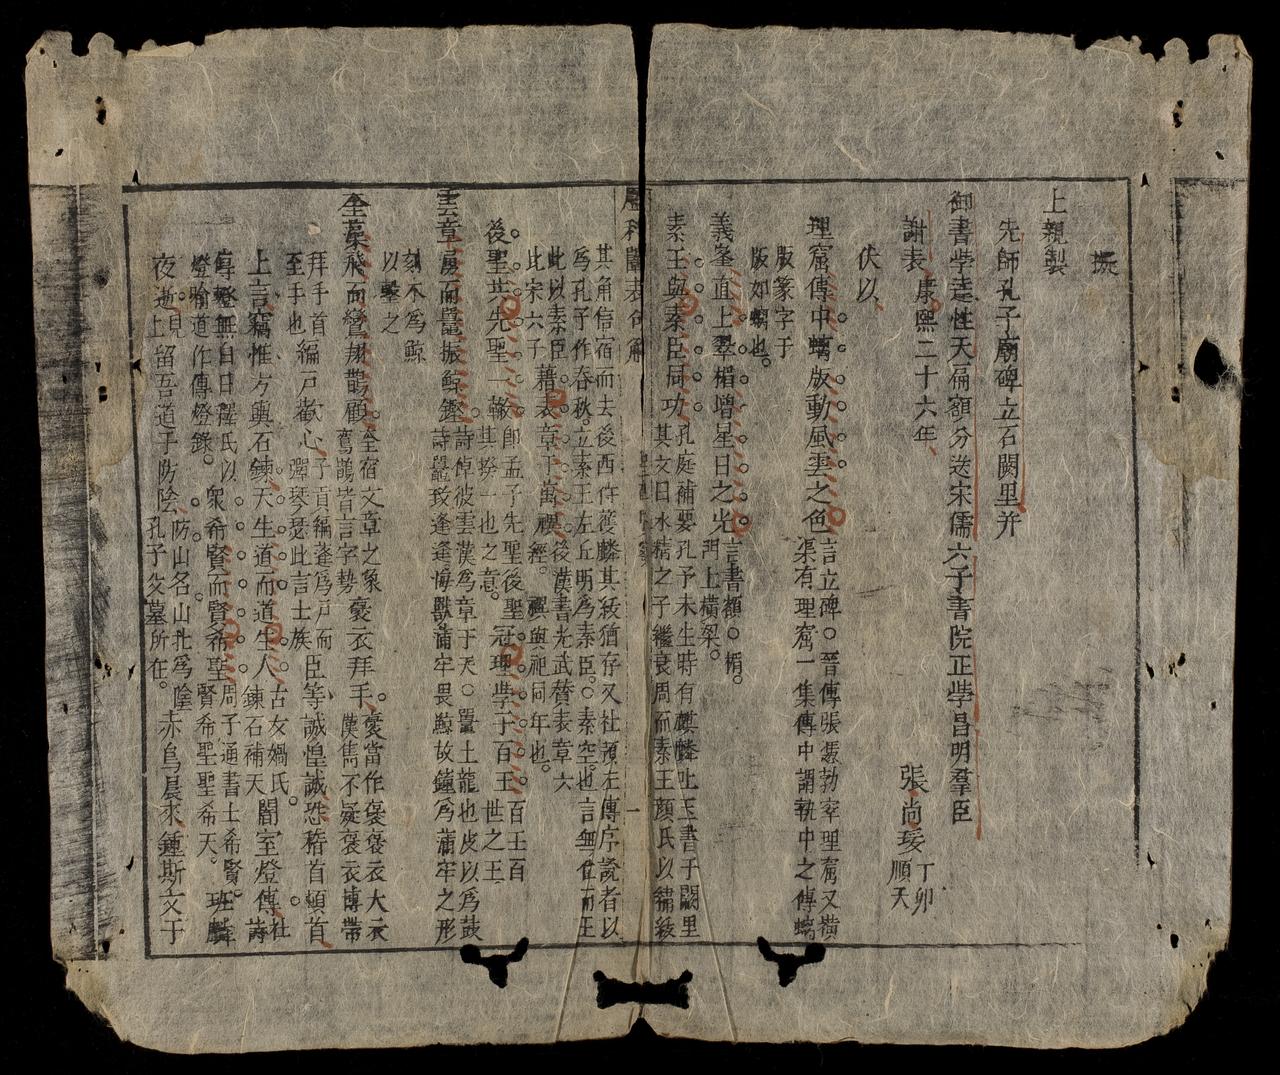 振
上親製
先師孔子廟碑立石闕里并
御書學達性天扁額分送宋儒六子書院正學昌明羣臣
謝表康熙二十六年、張尚瑗丁卯順天
伏以、
理窟傳中螭版動風雲之色言立碑○晉傳張憑勃窣理窟又橫
渠有理窟一集傳中謂執中之傳螭
版篆字于
版如螭也。
義峯直上翠楣增星日之光言書額○楣。
門上橫梁。
素王與素臣同功孔庭補要孔子未生時有麒麟吐玉書于闕里
其文曰水精之子繼衰周而素王顏氏以繡紱
其角信宿而去後西狩獲麟其紱猶存又杜預左傳序說者以
爲孔子作春秋。立素王左丘明爲素臣。○素空。也言無位而王
此以素臣。藉表章于萬禩後漢書光武贊表章六
此宋六子經。禩與祀同年也。
後聖共先聖一揆即孟子先聖後聖
其揆一也之意。冠理學于百王百王百
世之王
雲章廣而鼉振鯨鏗詩倬彼雲漢爲章于天○鼉土龍也皮以爲鼓
詩鼉鼓逢逢海獸蒲牢畏鯨故鐘爲蒲牢之形
刻木爲鯨
以擊之
全藁飛而鸞翔鵲顧全宿文章之象
鸞鵲皆言字勢褒衣拜手、褒當作襃襃衣大衣
漢雋不疑褒衣博帶
拜手首
至手也編戶歡心、子貢編蓬爲戶而
彈琴瑟此言士族臣等誠惶誠恐稽首頓首
上言竊惟方輿石鍊天生道而道生人古女媧氏。
鍊石補天闇室燈傳杜詩
傳燈無白日釋氏以
燈喻道作傳燈錄。衆希賢而賢希聖周子通書士希賢。
賢希聖聖希天。班麟
夜逝見上留吾道于防陰防山名山北爲陰
孔子父墓所在。赤烏晨來鍾斯文于